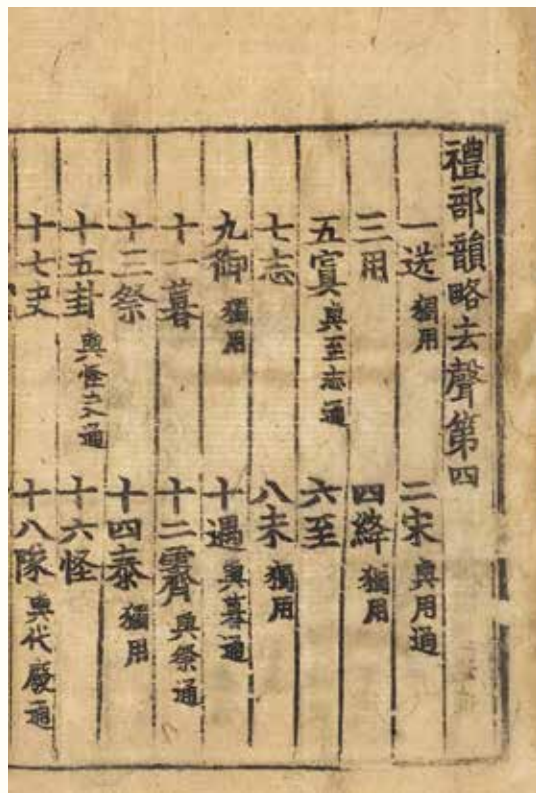 禮部韻略去聲第四
一送 獨用 二宋 與用通
三用 四絳 獨用
五寘 與至志通 六至
七志 八未 獨用
九御 獨用 十遇 與暮通
十一暮 十二霽 與祭通
十三祭 十四泰 獨用
十五卦 與怪夬通 十六怪
十七夬 十八隊 與代廢通